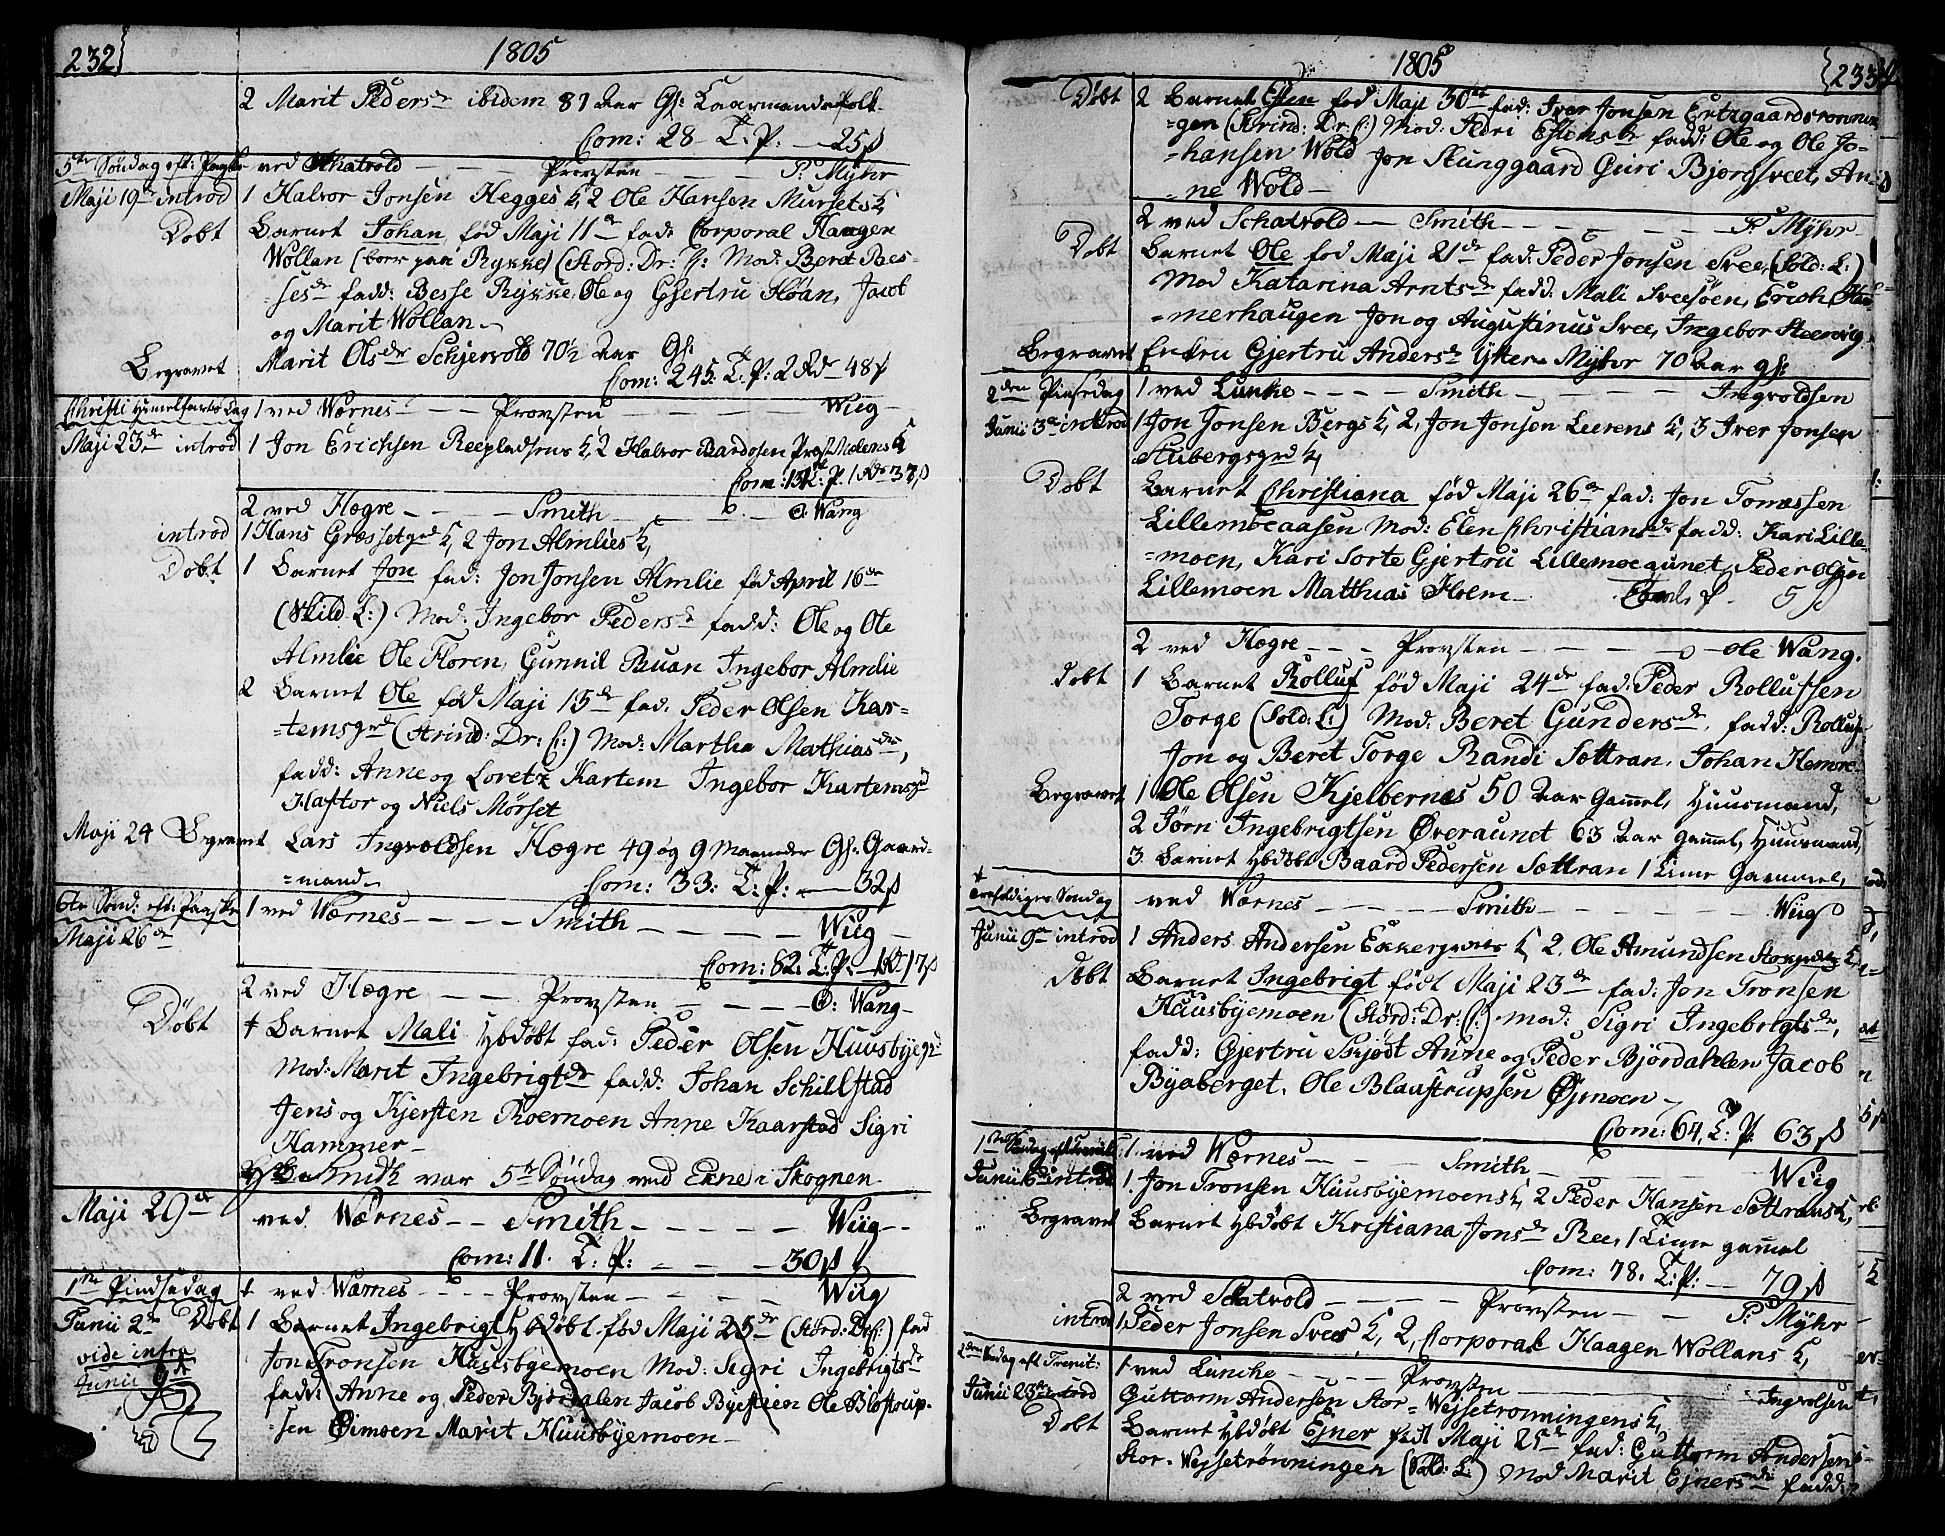 232
1805
2 Marit Peders dr ibidem 87 Aar Gl: Kaarmandsfolk
Com: 28 T. P. — 25 s
5te Søndag eft: Paaske ved Schatvold — Provsten — P. Myhr
Maji 19de introd 1 Halvor Jonsen Hegges K, 2 Ole Hansen Mursets K,
Døbt Barnet Johan fød Maji 11te fad: Corporal Haagen
Wollan (boer paa Rykke) (Stord: Dr: C: Mod: Beret Paes-
=ses dr fadd: Besse Rykke, Ole og Gjertru Sloan, Jacob
og Marit Wollan
Begravet Marit Ols dr Schjervold 70½ Aar Gl:
Com: 245. T: P: 2 Rd 48 s
Christi Himmelfarts Dag 1 ved Wærnes — Provsten — Wiig
Maji 23de introd 1 Jon Erichsen Reepladsens K, 2 Halvor Bardosen Præstmoens K
Com: 131 T: P. 1 Rd 33 s
2 ved Hegre — Smith — O: Wang
introd 1 Hans Græssetgrd K, 2 Jon Almlies K,
Døbt 1 Barnet Jon fad: Jon Jonsen Almlie fød April 16de
(Skild. L:) Mod: Ingebor Peders dr fadd: Ole og Ole
Almlie Ole Floren, Gunnil Buan Ingebor Almlie
2 Barnet Ole fød Maji 15de fad: Peder Olsen Kar=
=temsgrd (Strind: Dr: C:) Mod: Martha Mathias dr,
fadd: Anne og Loretz Kartem Ingebor Kartemsgrd
Hastor og Niels Mørset
Maji 24 Begravet Lars Ingvoldsen Hegre 49 og 9 Maaneder Gl: Gaard=
=mand
Com: 33: T: P: — 32 s
6te Sønd: eft: Paaske 1 ved Wærnes — Smith — Wiig
Maji 26de
Com: 82. T: P: — 1 Rd 17 s
2 ved Hegre — Provsten — O: Wang
Døbt 1 Barnet Mali Hbdøbt fad: Peder Olsen Huusbyegrd
Mod: Marit Ingebrigt dr fadd: Johan Schillstad
Jens og Kjersten Roermoen Anne Kaarstad Sigri
Hammer
Smith var 5te Søndag ved Ekne i Skognen
Maji 29de ved Wærnes — Smith — Wiig
Com: 11. T: P: — 30 s
1ste Pindsedag 1 ved Wærnes — Provsten — Wiig
Junii 2de Døbt 1 Barnet Ingebrigt Hbdøbt fød Maji 25de (Stord: Dr: C:) fad
vide infra Jon Tronsen Huusbyemoen Mod: Sigri Ingebrigts dr
Junii 9de fadd: Anne og Peder Bjordalen Jacob Byestien Ole Blostrup-
=sen Øimoen Marit Huusbyemoen
1805
233
Døbt 2 Barnet Esten fød Maji 30te fad: Iver Jonsen Ertzgaardsrønnin
=gen (Strind: Dr: C:) Mod: Sidri Estens dr fadd: Ole og Ole Jo-
=hansen Wold Jon Stunggaard Guri Bjørgsveet, An=
=ne Wold
2 ved Schatvold — Smith — P. Myhr
Døbt Barnet Ole fød Maji 21de fad: Peder Jonsen Svee, (Sold: L:)
Mod Katarina Arnts dr fadd: Mali Sveesøen, Erich Ham
=merhaugen Jon og Augustinus Svee, Ingebor Steenvig
Begravet Enkru Gjertru Anders dr Ytter Myhr 70 Aar gl:
2den Pinsedag 1 ved Lunke — Smith — Ingvoldsen
Junii 3de introd 1 Jon Jonsen Bergs K, 2, Jon Jonsen Leerens K, 3 Iver Jonsen
Stubergsgrd K,
Døbt Barnet Christiana fød Maji 26de fad: Jon Tomassen
Lillemoeaasen Mod: Elen Christians dr fadd: Kari Lille=
=moen, Kari Sorte Gjertru Lillemoegunet, Peder Olsen
Lillemoen Matthias Holm 5 s
2 ved Hegre — Provsten — Ole Wang.
døbt 1 Barnet Rolluf fød Maji 24de fad: Peder Rollufsen
Torge (Sold: L:) Mod: Beret Gunders dr, fadd: Rolluf
Jon og Beret Torge Randi Sættran, Johan Hemre
Begravet 1 Ole Olsen Kjelbernes 50 Aar Gammel, Huusmand,
2 Jørn Ingebrigtsen Øveraunet 63 Aar Gammel, Huusmand,
3. Barnet Hbdøbt Baard Pedersen Sættran 1 Time Gammel,
Trefoldigheds Søndag ved Wærnes — Smith — Wiig
Junii 9de introd 1 Anders Andersen Ekkergrdets K, 2. Ole Amundsen K,
Døbt Barnet Ingebrigt født Maji 23de fad: Jon Tronsen
Huusbyemoen (Stord: Dr: C:) mod: Sigri Ingebrigts dr,
fadd: Gjertru Skjødt Anne og Peder Bjordahlen Jacob
Byaberget. Ole Blaastrupsen Øjmoen
Com: 64, T: P: 63 s
1ste Søndag eft Trenit: 1. ved Wærnes — Smith — Wiig
Junii 16de introd 1. Jon Tronsen Huusbyemoens K, 2 Peder Hansen Sættrans K,
Begravet Barnet Hbdøbt Kristiana Jons dr Ree, 1 Time gammel
Com: 78. T: P: — 79 s
2 ved Schatvold — Provsten — P. Myhr
introd 1. Peder Jonsen Svees K, 2, Corporal Haagen Wollans K,
2den Søndag eft Trenit: 1 ved Lunche — Provsten — Ingvolsen
Junii 23de introd Guttorm Andersen Stor=Wejsetrønningens K,
Døbt Barnet Hbdøbt Ejner født Maji 25de fad: Guttorm Andersen
Stor=Wejsetrønningen (Sold: L:) Mod Marit Ejners dr fadd: